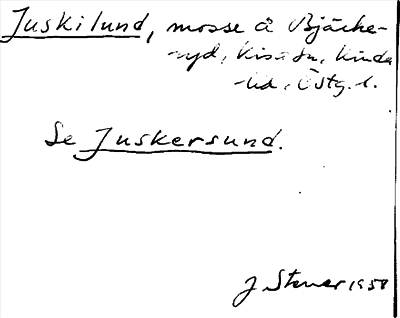 Juskilund, mosse å Bjäcke-
ryd, Kisa sn, Kinda
hd, Östg. l.
Se Juskersund.
J. Stener 1958